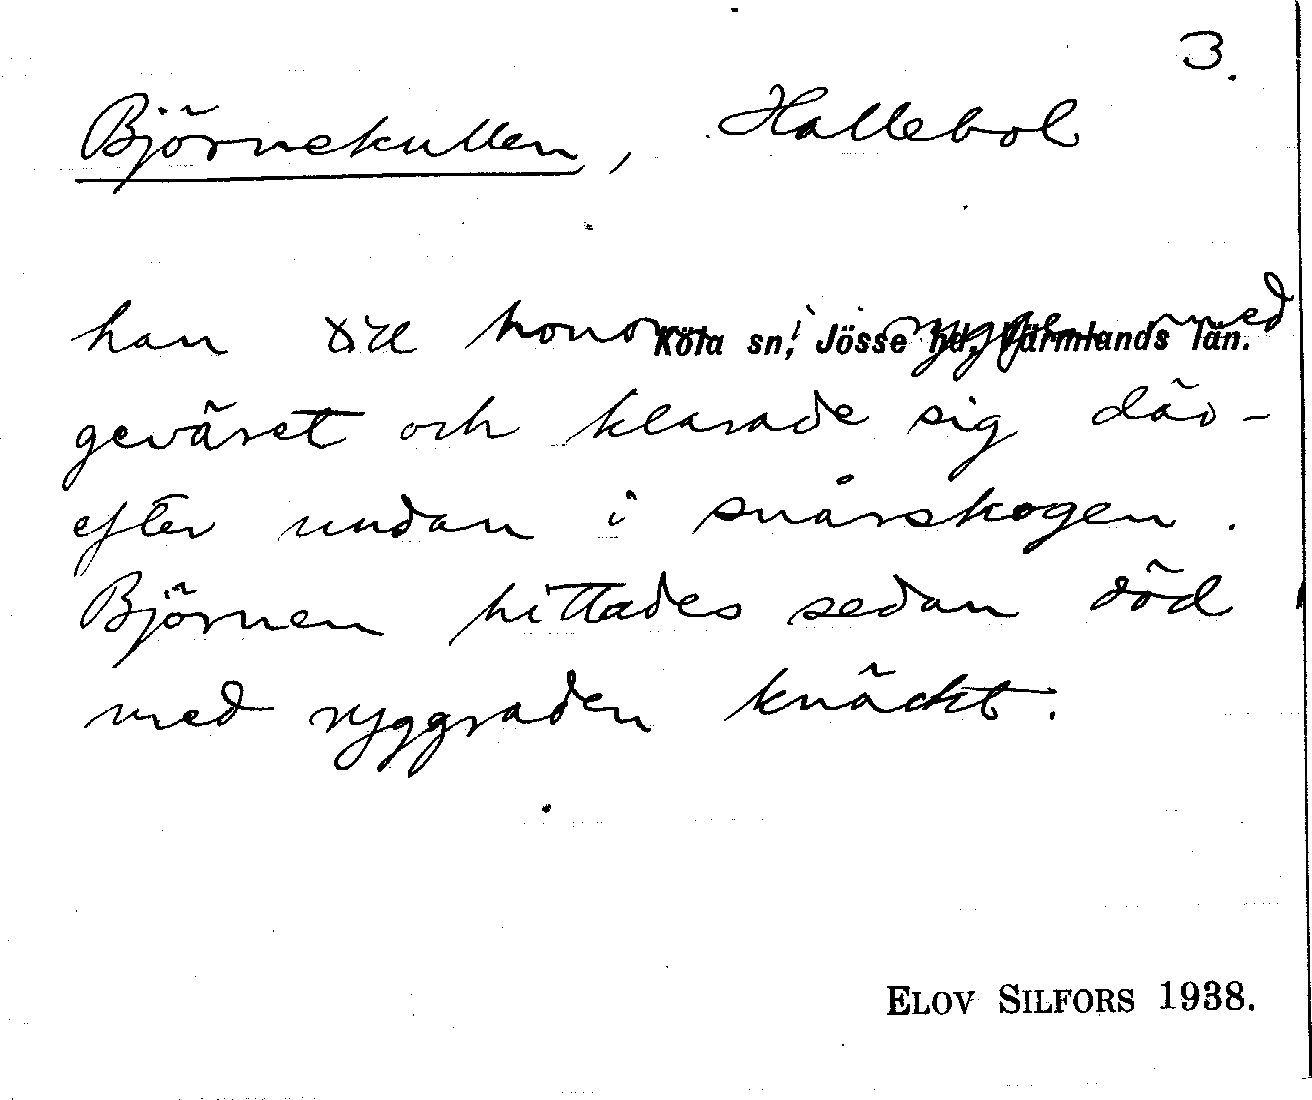 3.
Björnekullen, Hallebol
han till honom i ryggen med
Köla sn, Jösse hd, Värmlands län.
geväret och klarade sig där-
efter undan i snårskogen.
Björnen hittades sedan död
med ryggraden knäckt.
ELOV SILFORS 1938.